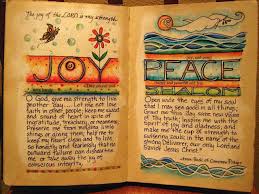 The joy of the LORD is my strength
JOY
O God, give me strength to live
another Day... Let me not lose
faith in other people; keep me
sound of heart in spite of
ingratitude, treachery, or meanness;
Preserve me from minding little
stings or giving them; help me to
keep my heart clean and to live
honestly and fearlessly that no
outward failure can dishearten
me or take away the joy of
conscious integrity.
PEACE
SHALOM
Open wide the eyes of my soul
that I may see good in all things;
Grant me this day some new
vision of Thy truth; Inspire me with
Spirit of joy and gladness; and
make me the cup of strength to
suffering souls; in the name of the
strong Deliverer, our only Lord
and Savior, Jesus Christ!
from Book of Common Prayer